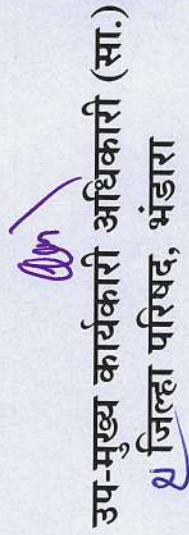 उप-मुख्य कार्यकारी अधिकारी (सा.)
जिल्हा परिषद, भंडारा